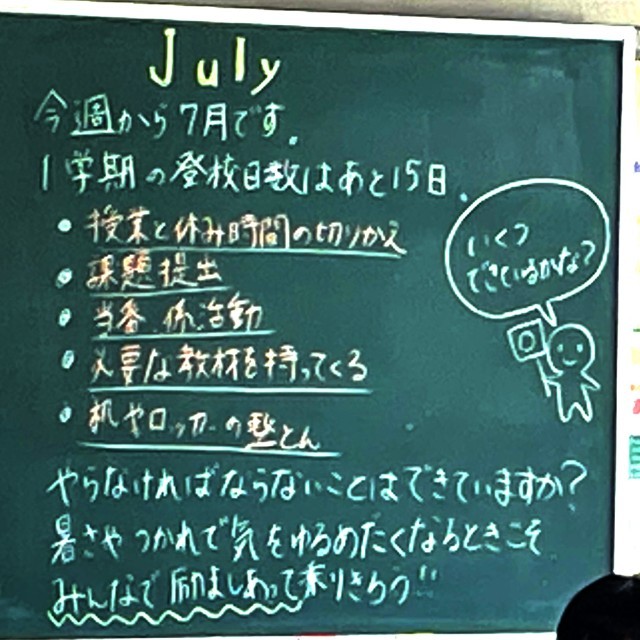 July
今週から7月です。
1学期の登校日数はあと15日。
・授業と休み時間の切りかえ
・課題提出
・当番、係活動
・必要な教材を持ってくる
・机やロッカーの整とん
いくつ
できているかな?
やらなければならないことはできていますか?
暑さやつかれで気をゆるめたくなるときこそ
みんなで励ましあって乗りきろう!!